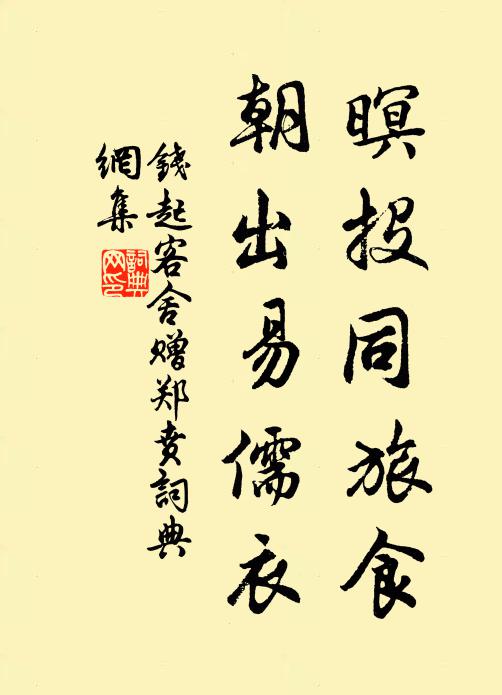 暝投同旅食
朝出易儒衣
錢起客舍赠郑贲詞典
網集
詞典
网印